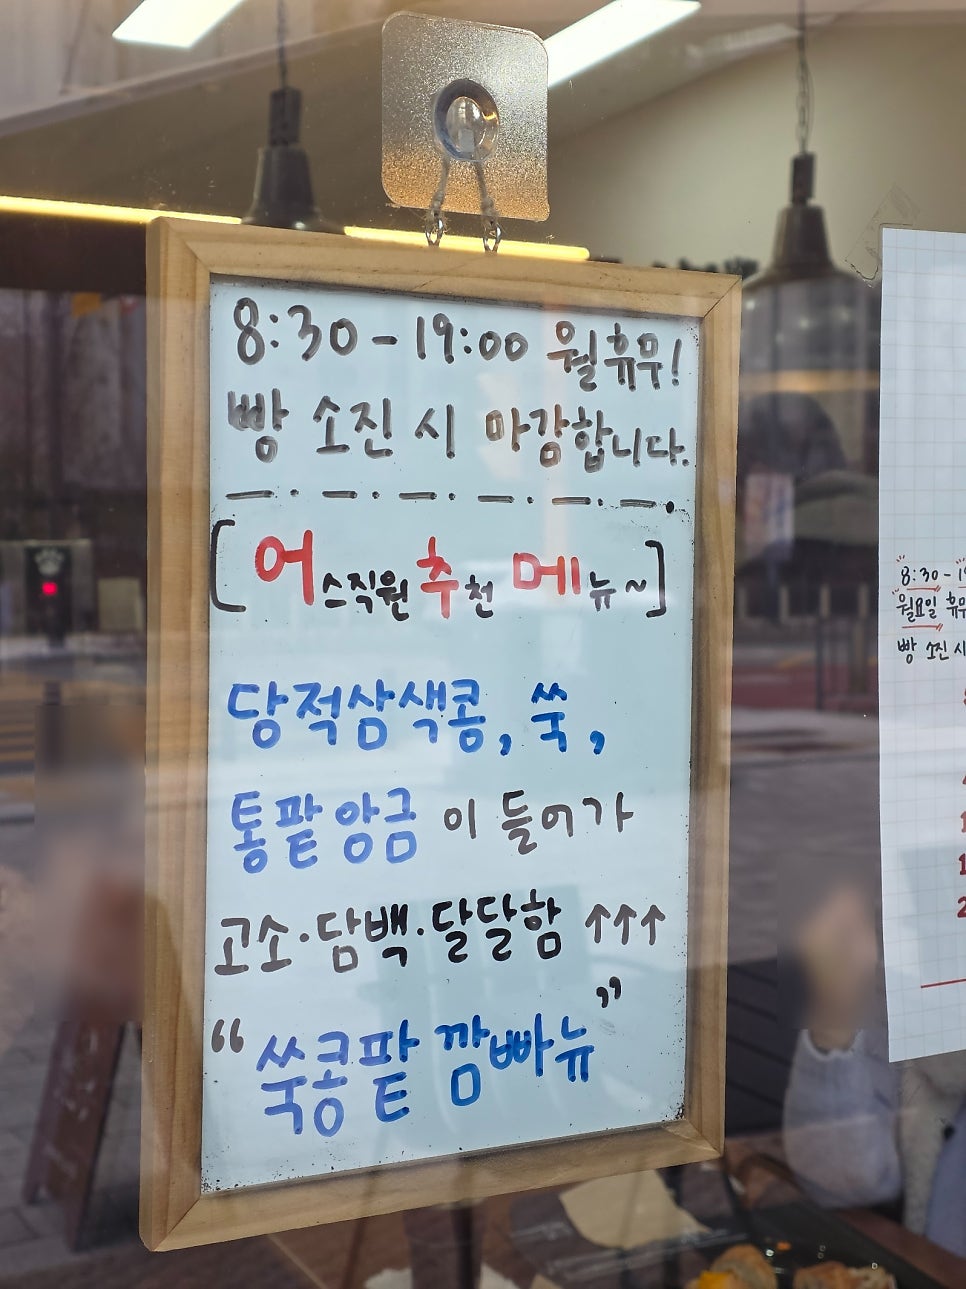 8:30-19:00 월휴무!
빵 소진 시 마감합니다.
[어스직원추천메뉴~]
당적삼색콩, 쑥,
통팥앙금이 들어가
고소·담백·달달함 ↑↑↑
“쑥콩팥 깜빠뉴”
8:30-1
월요일 휴무
빵 소진 시